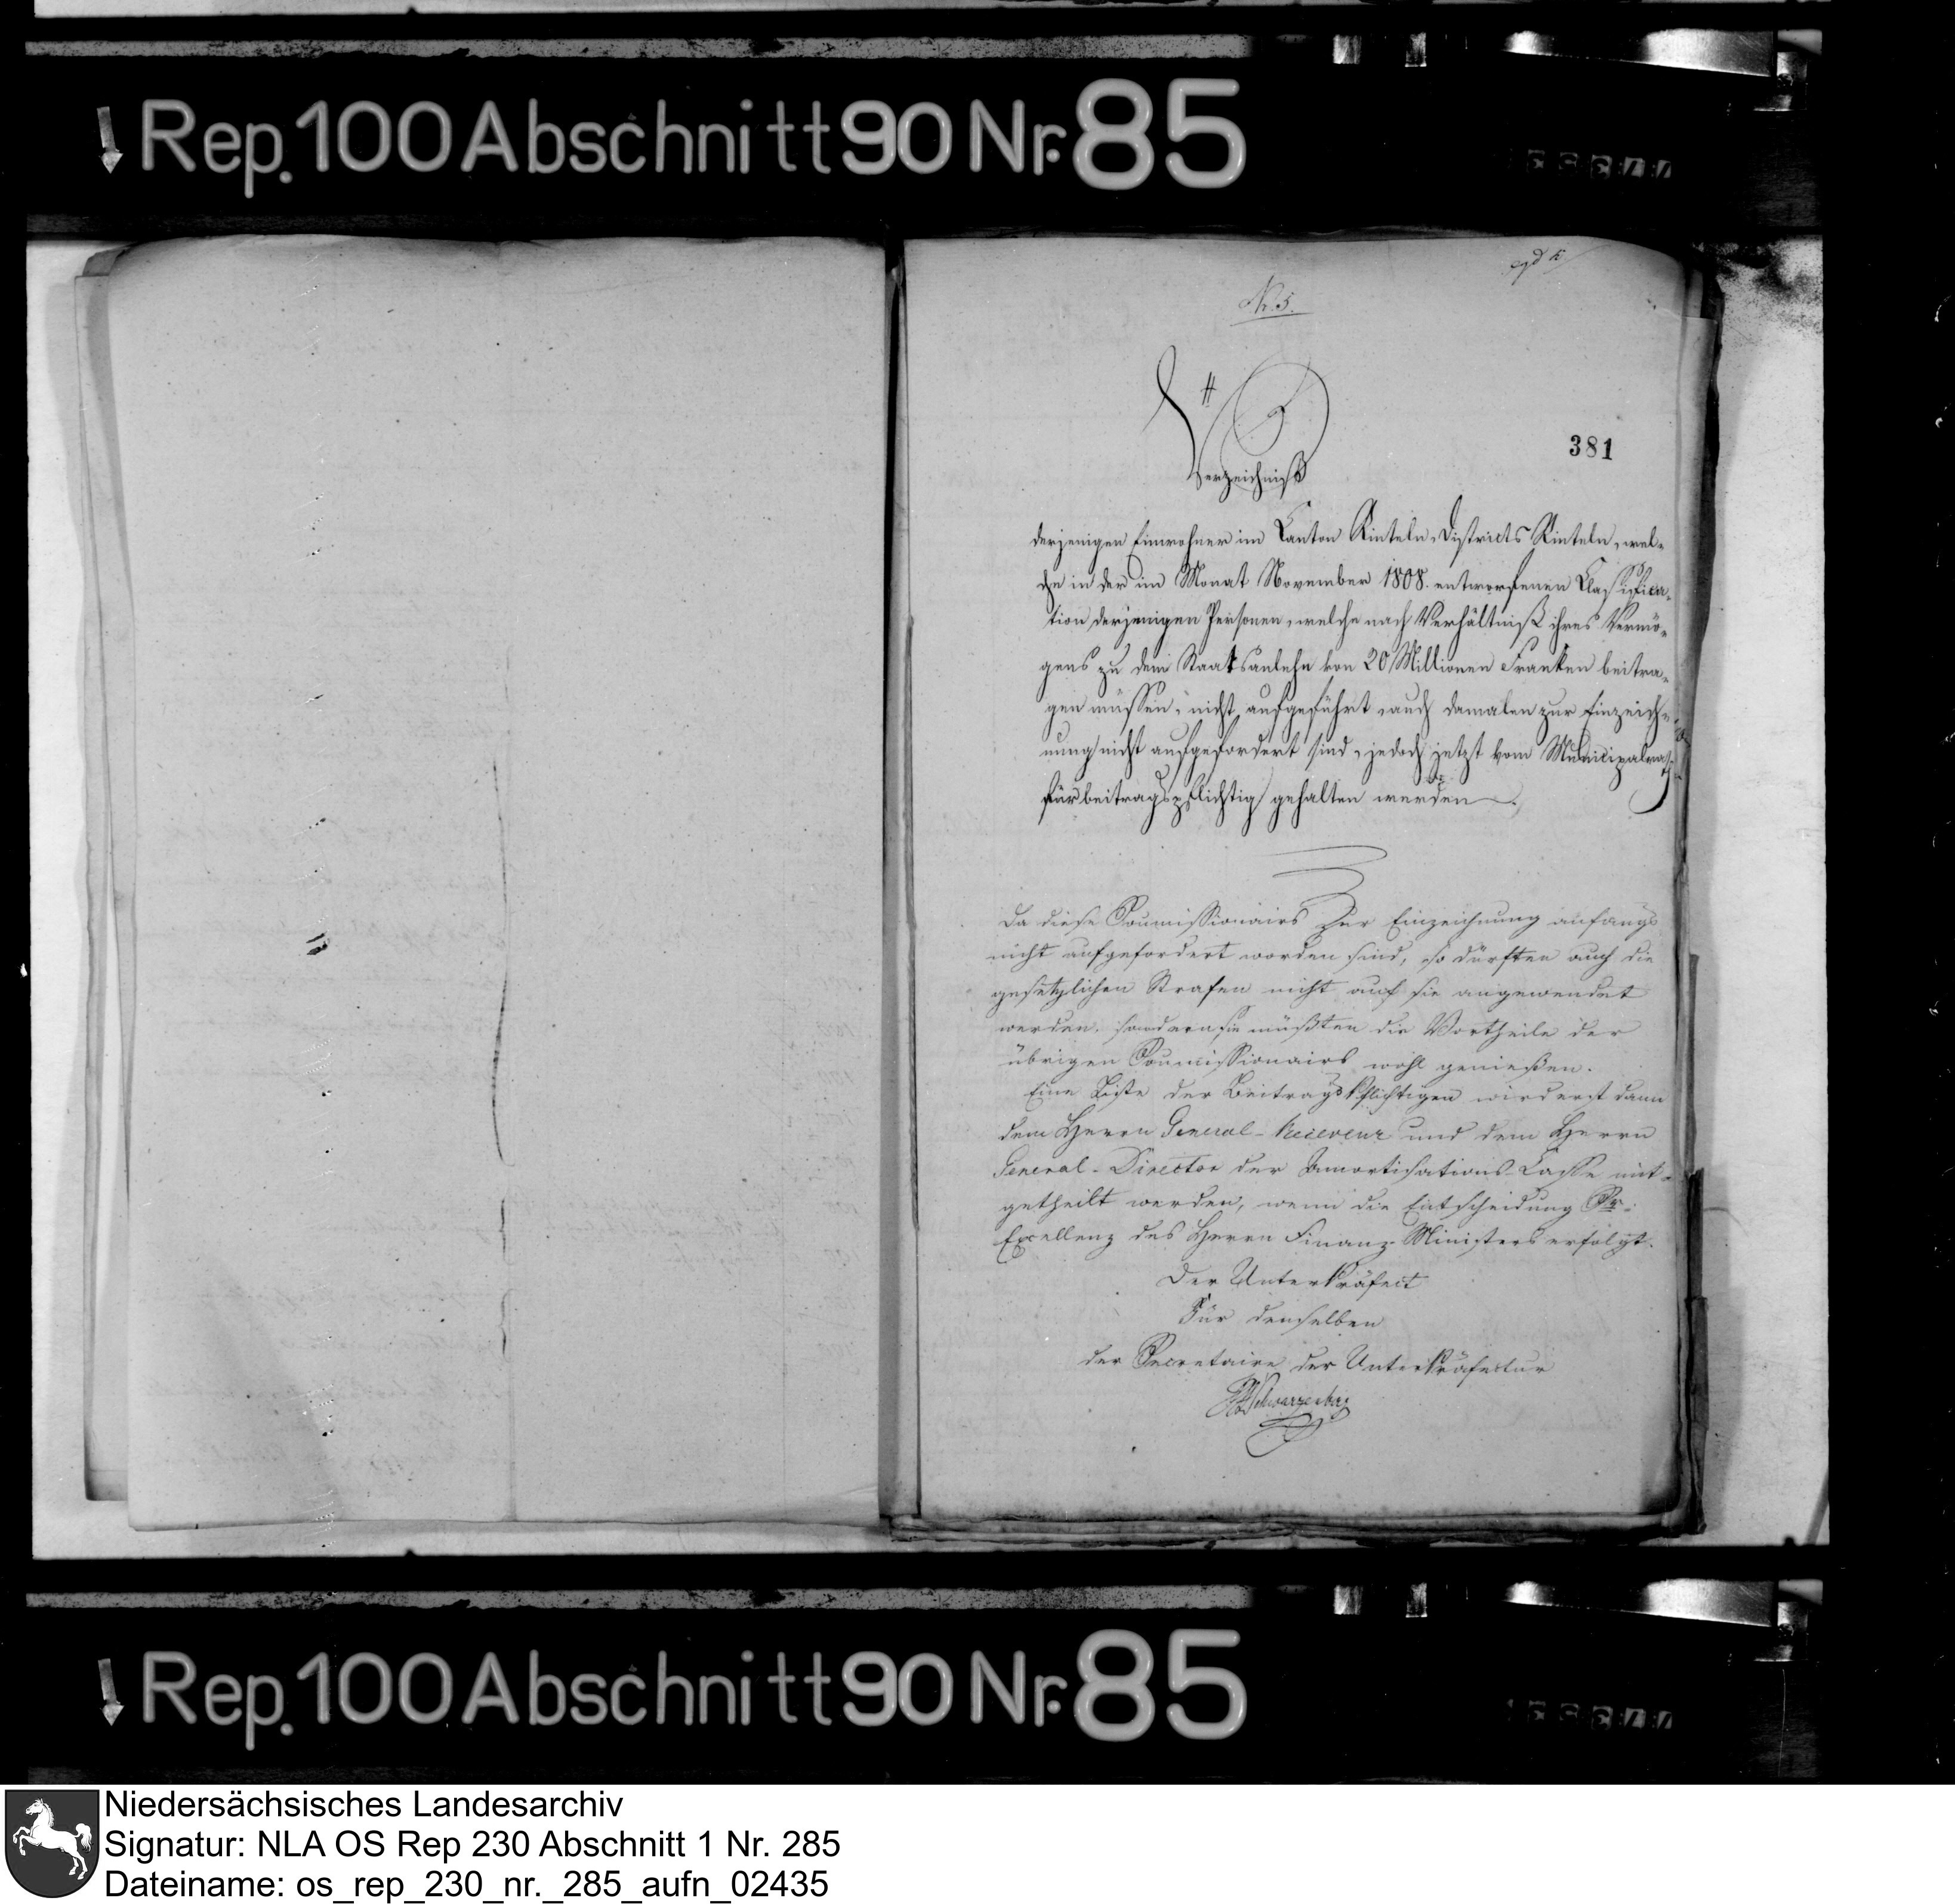 Rep. 100 Abschnitt 90 Nr. 85
Nr. 5.
381
Verzeichniß
derjenigen Einwohner im Canton Rinteln, Districts Rinteln, wel-
che in der im Monat November 1808. entworfenen Classifica-
tion derjenigen Personen, welche nach Verhältniß ihres Vermö-
gens zu dem Staatsanlehn von 20 Millionen Franken beitra-
gen müssen, nicht aufgeführt, auch damalen zur Einzeich-
nung nicht aufgefordert sind, jedoch jetzt vom Municipalrath
für beitragspflichtig gehalten werden.
Da diese Soumissionairs zur Einzeichnung anfangs
nicht aufgefordert worden sind, so dürften auch die
gesetzlichen Strafen nicht auf sie angewendet
werden, sondern sie müßten die Vortheile der
übrigen Soumissionairs wohl genießen.
Eine Liste der Beitragspflichtigen wird erst dann
dem Herrn General-Receveur und dem Herrn
General-Director der Amortisations-Casse mit-
getheilt werden, wenn die Entscheidung Sr.
Excellenz des Herrn Finanz-Ministers erfolgt.
Der Unterpräfect
Für denselben
der Secretaire der Unterpräfectur
Schwarzenberg
Rep. 100 Abschnitt 90 Nr. 85
Niedersächsisches Landesarchiv
Signatur: NLA OS Rep 230 Abschnitt 1 Nr. 285
Dateiname: os_rep_230_nr._285_aufn_02435